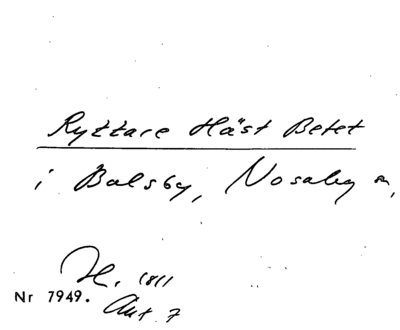 Ryttare Häst Betet
i Balsby, Nosaby n,
H. 1811
Nr 7949.
Akt 7